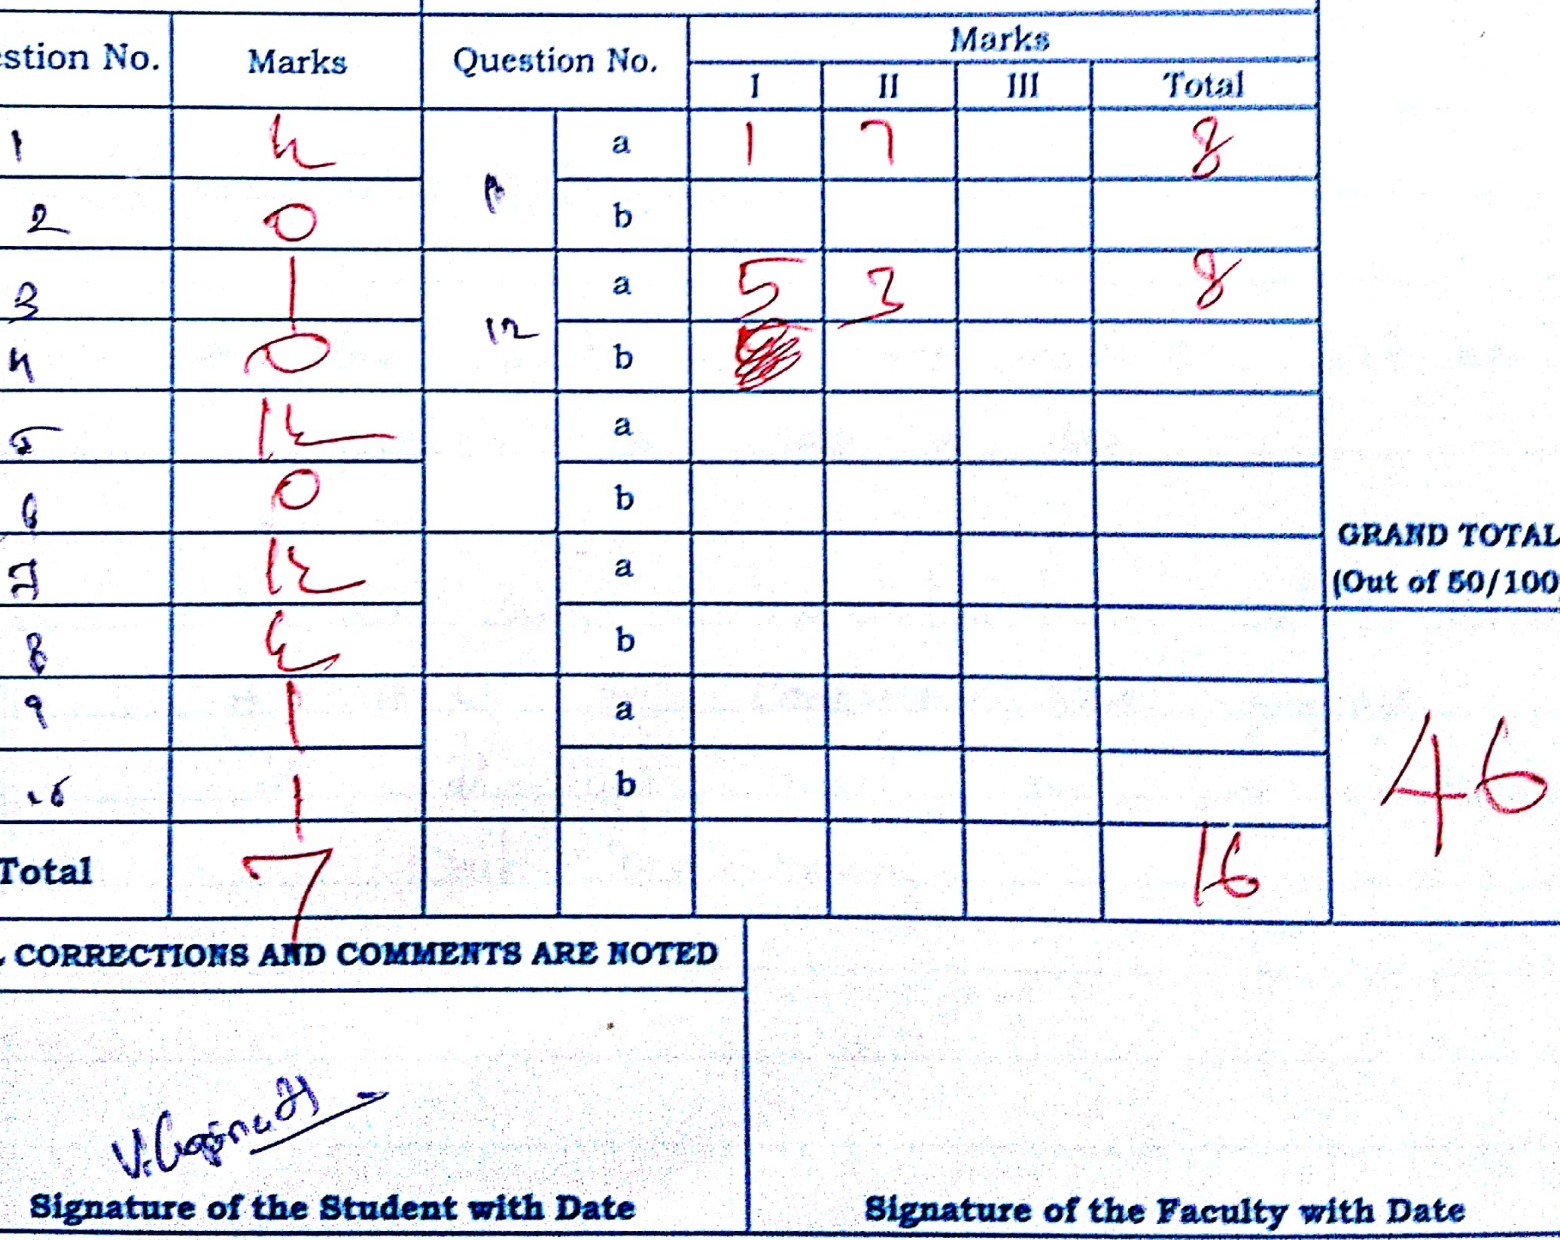 stion No. Marks Question No. Marks
I II III Total
1 a 1 7 8
2 0 b
3 1 12 a 5 3 8
4 0 b
5 a
6 0 b
7 a
8 b
9 1 a
10 1 b
Total 7 16
GRAND TOTAL
(Out of 50/100
46
CORRECTIONS AND COMMENTS ARE NOTED
Signature of the Student with Date
Signature of the Faculty with Date